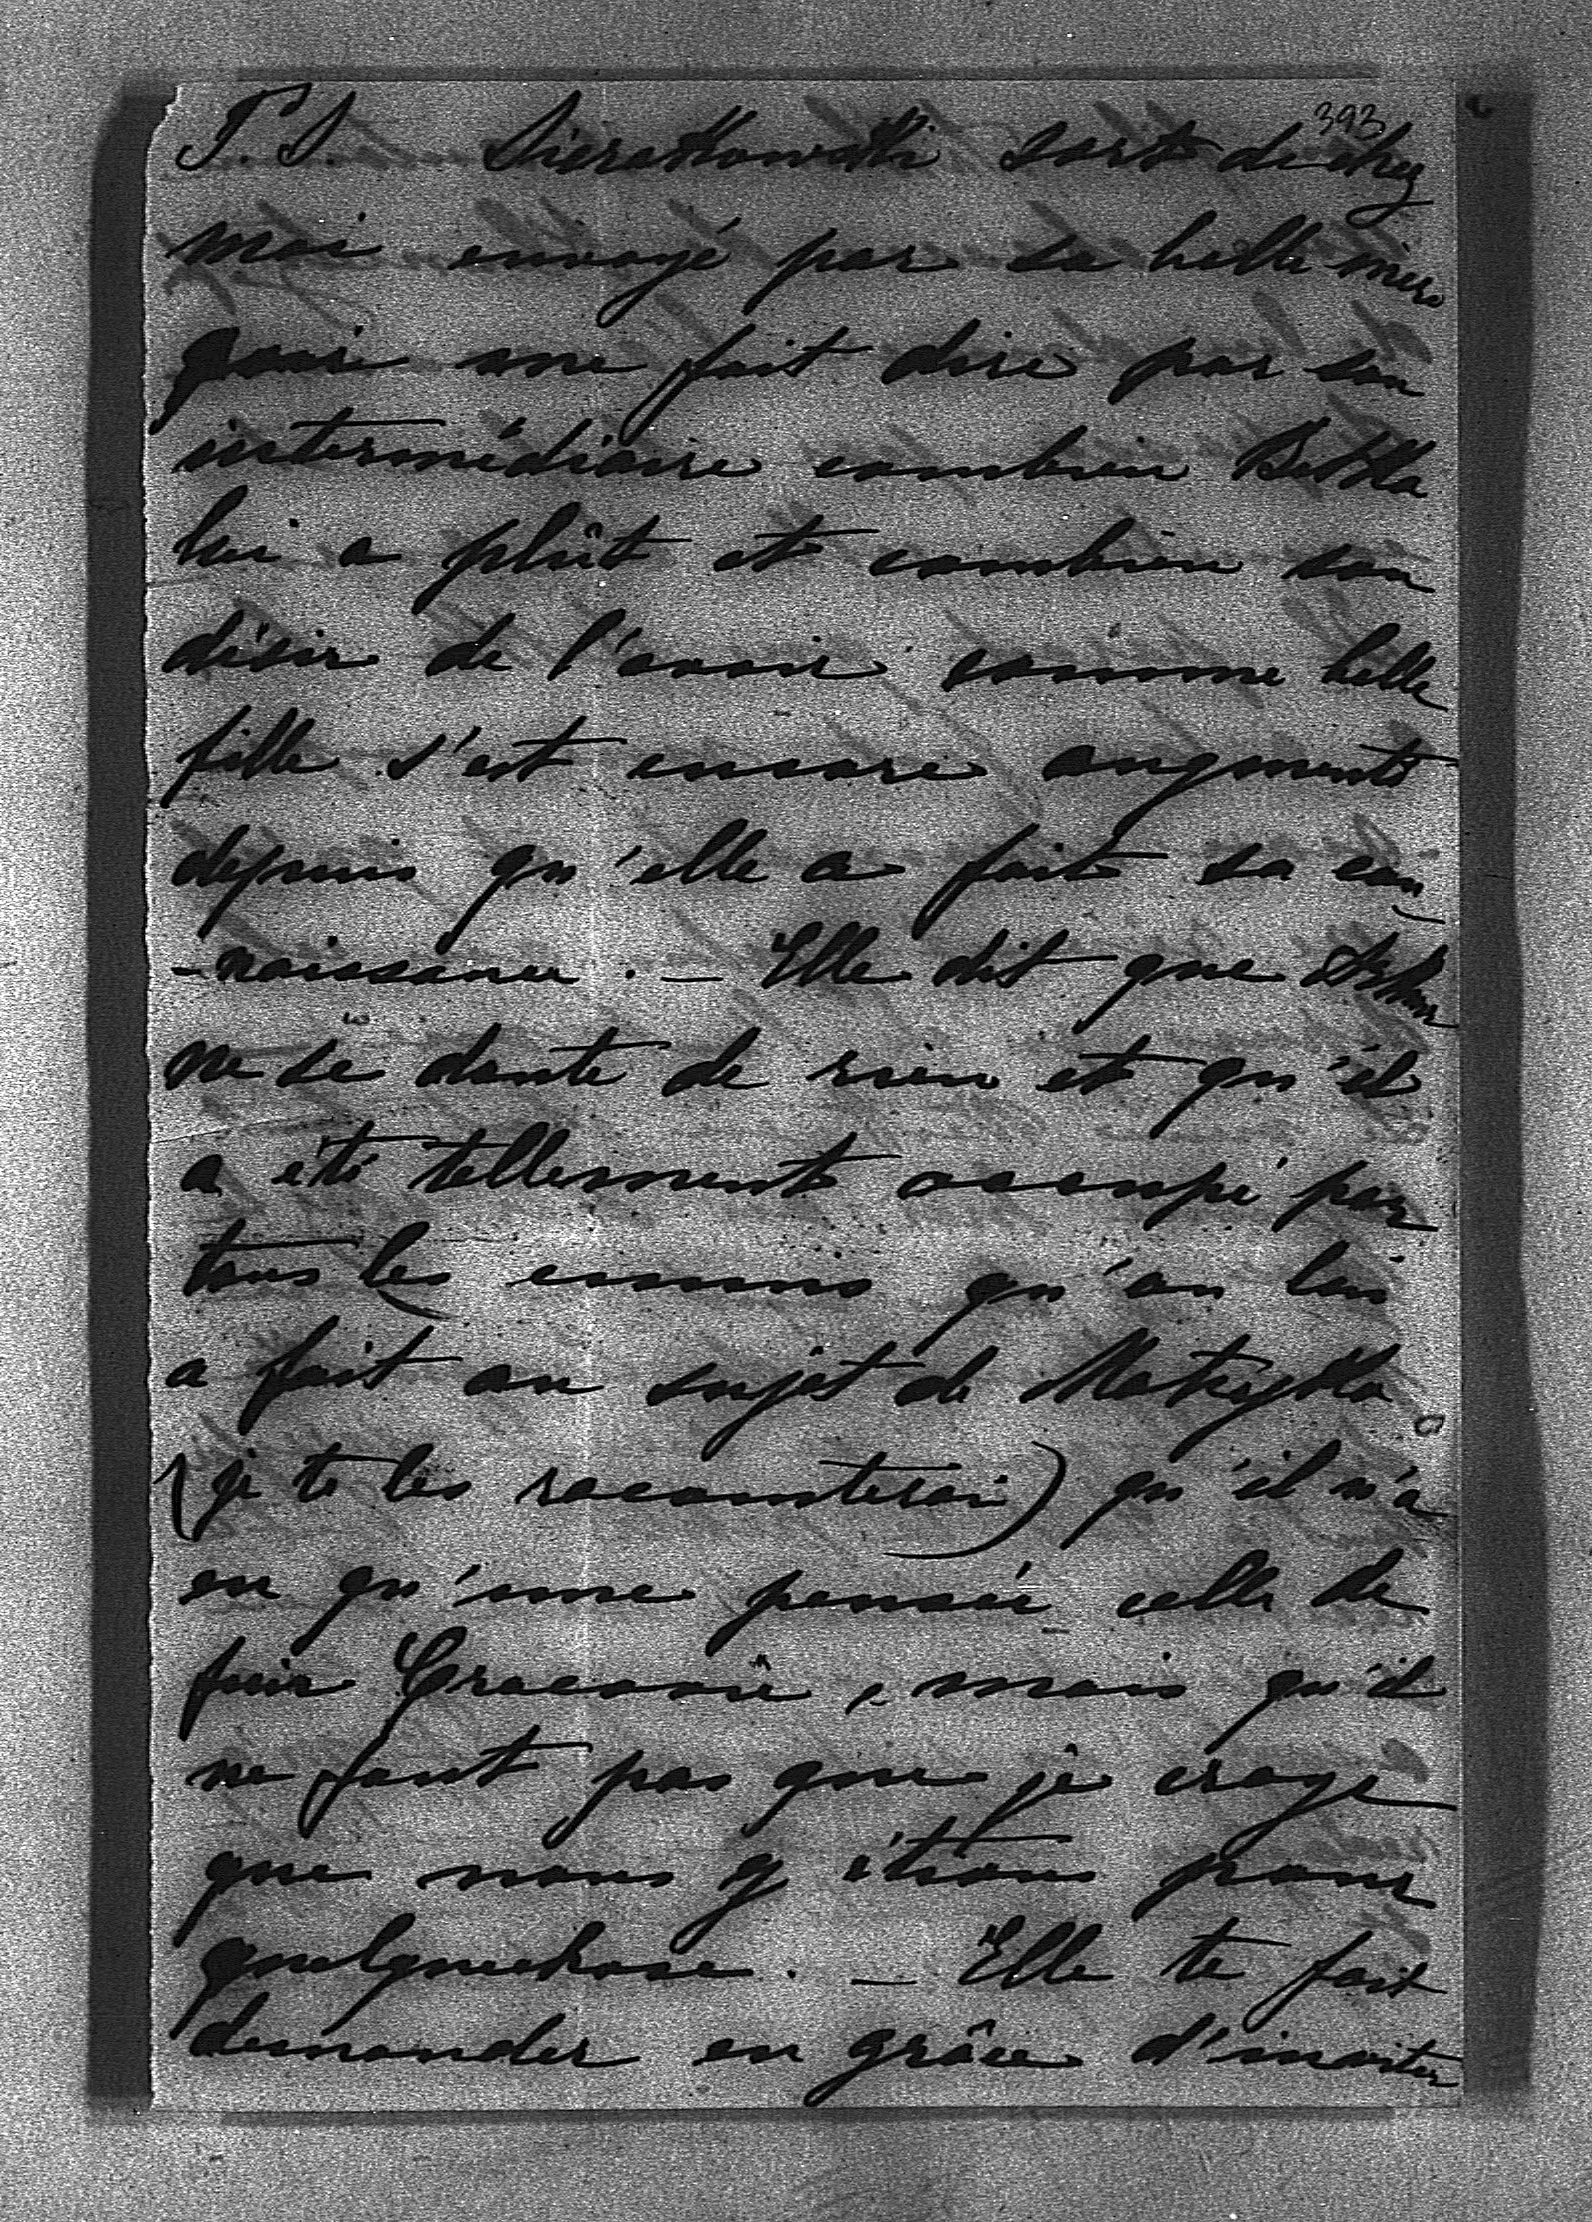 393
P. S. Sierakowski sort de chez
moi envoyé par sa belle mère
qui me fait dire par son
intermédiaire combien Betka
lui a plût et combien son
désir de l'avoir comme belle
fille s'est encore augmenté
depuis qu'elle a fait sa con
-naissance. — Elle dit que
ne se doute de rien et qu'il
a été tellement occupé par
tous les ennuis qu'on lui
a fait au sujet de Matejko
(je te les raconterai) qu'il n'a
eu qu'une pensée celle de
fuir Cracovie, mais qu'il
ne faut pas que je croye
que nous y étions pour
quelquechose. — Elle te fait
demander en grâce d'inviter